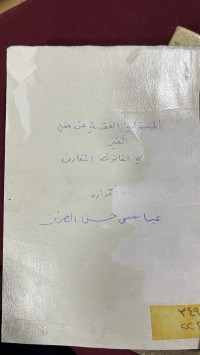 المسئولية العقدية عن فعل
الغير
في القانون المقارن
دكتوراه
عباس حسن الصراف
٣٤٩